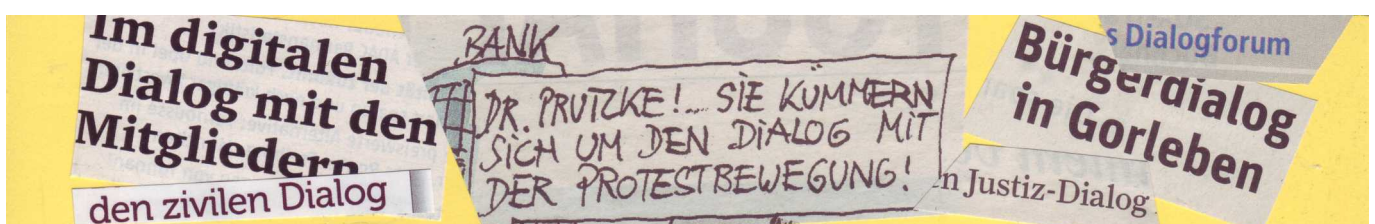 Im digitalen
Dialog mit den
Mitgliedern
den zivilen Dialog
BANK
DR. PRUTZKE!... SIE KÜMMERN
SICH UM DEN DIALOG MIT
DER PROTESTBEWEGUNG!
s Dialogforum
Bürgerdialog
in Gorleben
n Justiz-Dialog